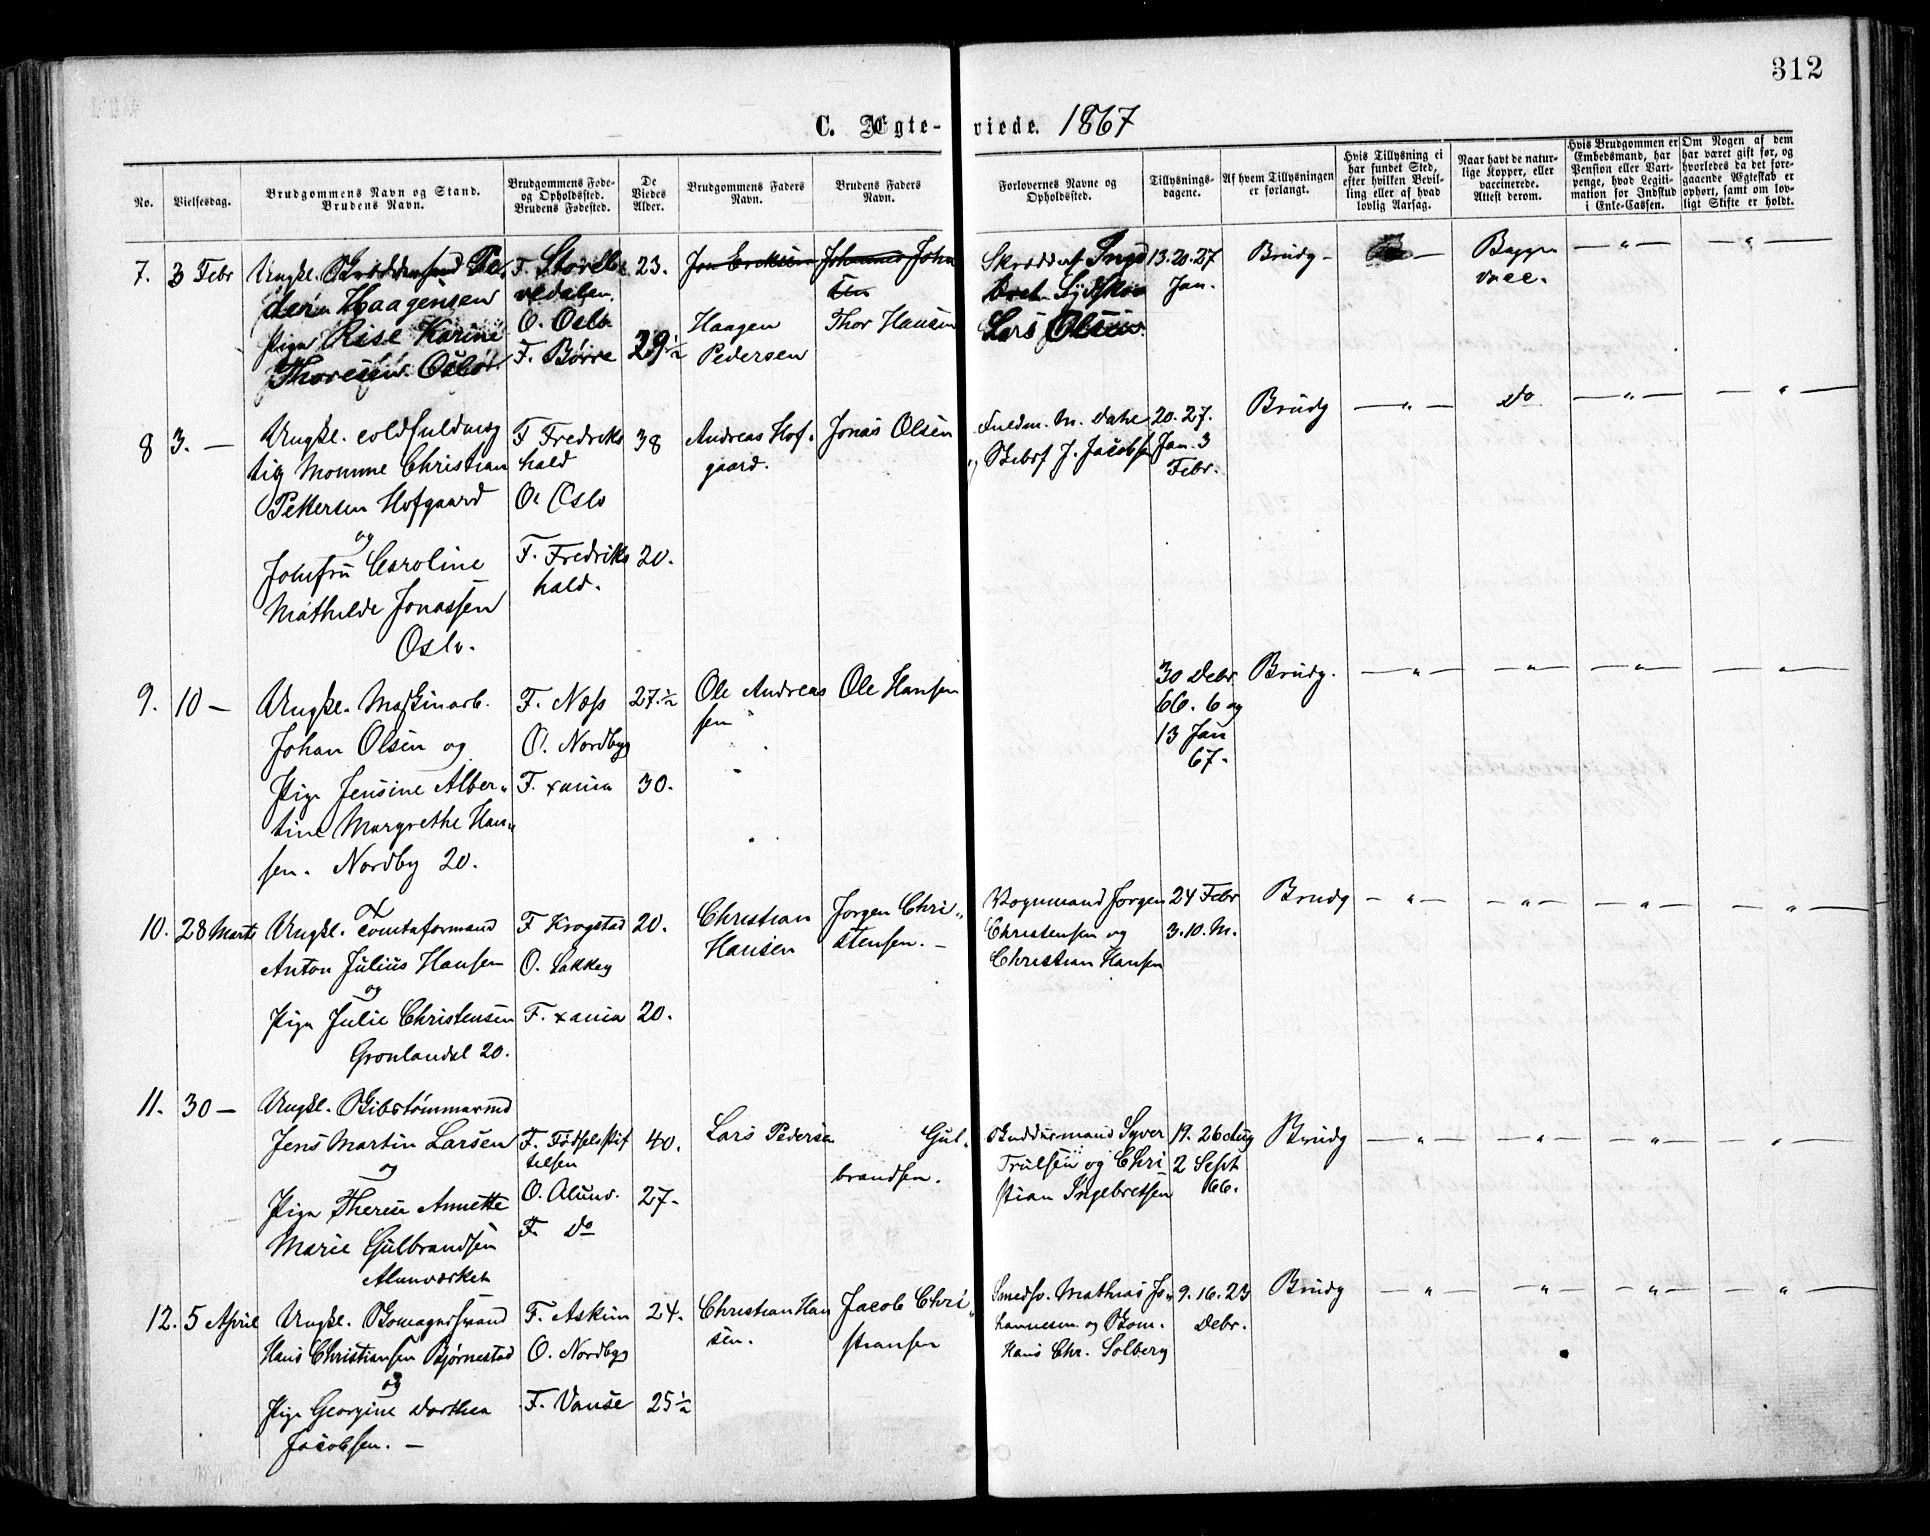 312
C. Ægteviede. 1867
No.
Vielsesdag.
Brudgommens Navn og Stand.
Brudens Navn.
Brudgommens Føde-
og Opholdssted.
Brudens Fødested.
De
Viedes
Alder.
Brudgommens Faders
Navn.
Brudens Faders
Navn.
Forlovernes Navne og
Opholdssted.
Tillysnings-
dagene.
Af hvem Tillysningen
er forlangt.
Hvis Tillysning ei
har fundet Sted,
efter hvilken Bevil-
ling eller af hvad
lovlig Aarsag.
Naar havt de natur-
lige Kopper, eller
vaccinerede.
Attest derom.
Hvis Brudgommen er
Embedsmand, har
Pension eller Vart-
penge, hvad Legiti-
mation for Indskud
i Enke-Cassen.
Om Nogen af dem
har været gift før, og
hvorledes da det fore-
gaaende Ægteskab er
ophørt, samt om lov-
ligt Skifte er holdt.
7. 3 Febr
Ungkl. Skræddersvend Pe
der Haagensen
Pige Rise Karine
Thoresen. Oslo
O. Oslo
F. Børre
23.
29½
Jon Eriksen
Haagen
Pedersen
Johannes John
sen
Thor Hansen
Lars Olsen
13. 20. 27
Jan.
Brudg
Begge
vacc.
8 3. —
Ungkl.
tig Momme Christian
Pettersen Hofgaard
og
Jomfru Caroline
Mathilde Jonassen
Oslo.
F Fredriks
hald
O. Oslo
F. Fredriks
hald.
38
20.
Andreas Hof-
gaard.
Jonas Olsen
Fuldm. M. Dahl
J. Jacobsen
20. 27.
Jan. 3
Febr.
Brudg
— " —
Do
— " —
— " —
9. 10 —
Ungkl. Maskinarb.
Johan Olsen og
Pige Jensine Alber-
tine Margrethe Han-
sen. Nordby 20.
F. Næs
O. Nordbyg
F. xania
27.½
30.
Ole Andreas
sen
Ole Hansen
30 Debr
66. 6 og
13 Jan
67.
Brudg.
— " —
— " —
— " —
— " —
10. 28 Marts
Ungkl. Tomteformand
Anton Julius Hansen
og
Pige Julie Christensen
Grønlandsl 20.
F Krogstad
O. Lakkeg
F. xania
20.
20.
Christian
Hansen
Jørgen Chri-
stensen. —
Vognmand Jørgen
Christensen og
Christian Hansen
24 Febr
3. 10. M.
Brudg
— " —
— " —
— " —
— " —
11. 30 —
Ungkl. Skibstømmermd
Jens Martin Larsen
og
Pige Therese Annette
Marie Gulbrandsen
Alunværket
F. Fødselsstif
telsen
O. Alunv.
F. Do
40.
27.
Lars Pedersen
Gul-
brandsen.
Syver
Trulsen og Chri
stian Ingebretsen
19. 26 Aug
2 Sept
66.
Brudg
— " —
— " —
— " —
— " —
12. 5 April
Ungkl. Skomagersvend
Hans Christiansen Bjørnestad
og
Pige Georgine Dorthea
Jacobsen. —
F. Askim
O. Nordbyg
F. Vanse
24.
25½
Christian Han
sen.
Jacob Chri-
stiansen
Smedsv. Mathias Jo-
hannesen og Skom.
Hans Chr. Solberg
9. 16. 23
Debr.
Brudg
— " —
— " —
— " —
— " —